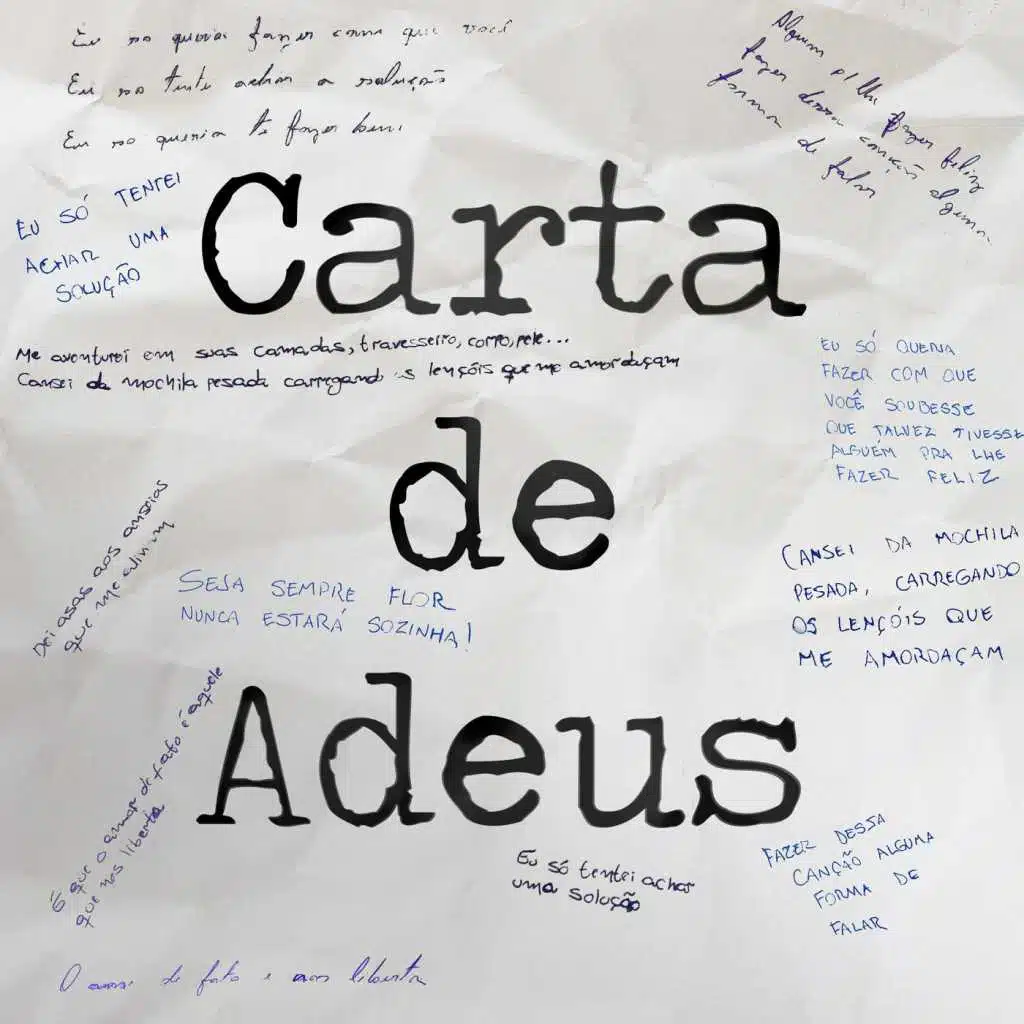 Eu só queria fazer com que você
Eu só tentei achar a solução
Eu só queria te fazer bem.
Alguém p/ lhe fazer feliz
fazer dessa canção alguma
forma de falar
EU SÓ TENTEI
ACHAR UMA
SOLUÇÃO
Carta
Me aventurei em suas camadas, travesseiro, corpo, pele...
Cansei da mochila pesada carregando os lençóis que me amordaçam
EU SÓ QUERIA
FAZER COM QUE
VOCÊ SOUBESSE
QUE TALVEZ TIVESSE
ALGUÉM PRA LHE
FAZER FELIZ
de
Dei asas aos anseios
que me
CANSEI DA MOCHILA
PESADA, CARREGANDO
OS LENÇÓIS QUE
ME AMORDAÇAM
SEJA SEMPRE FLOR
NUNCA ESTARÁ SOZINHA!
Adeus
É que o amor de fato é aquele
que nos liberta
Eu só tentei achar
uma solução
FAZER DESSA
CANÇÃO ALGUMA
FORMA DE
FALAR
O amor de fato é nos liberta